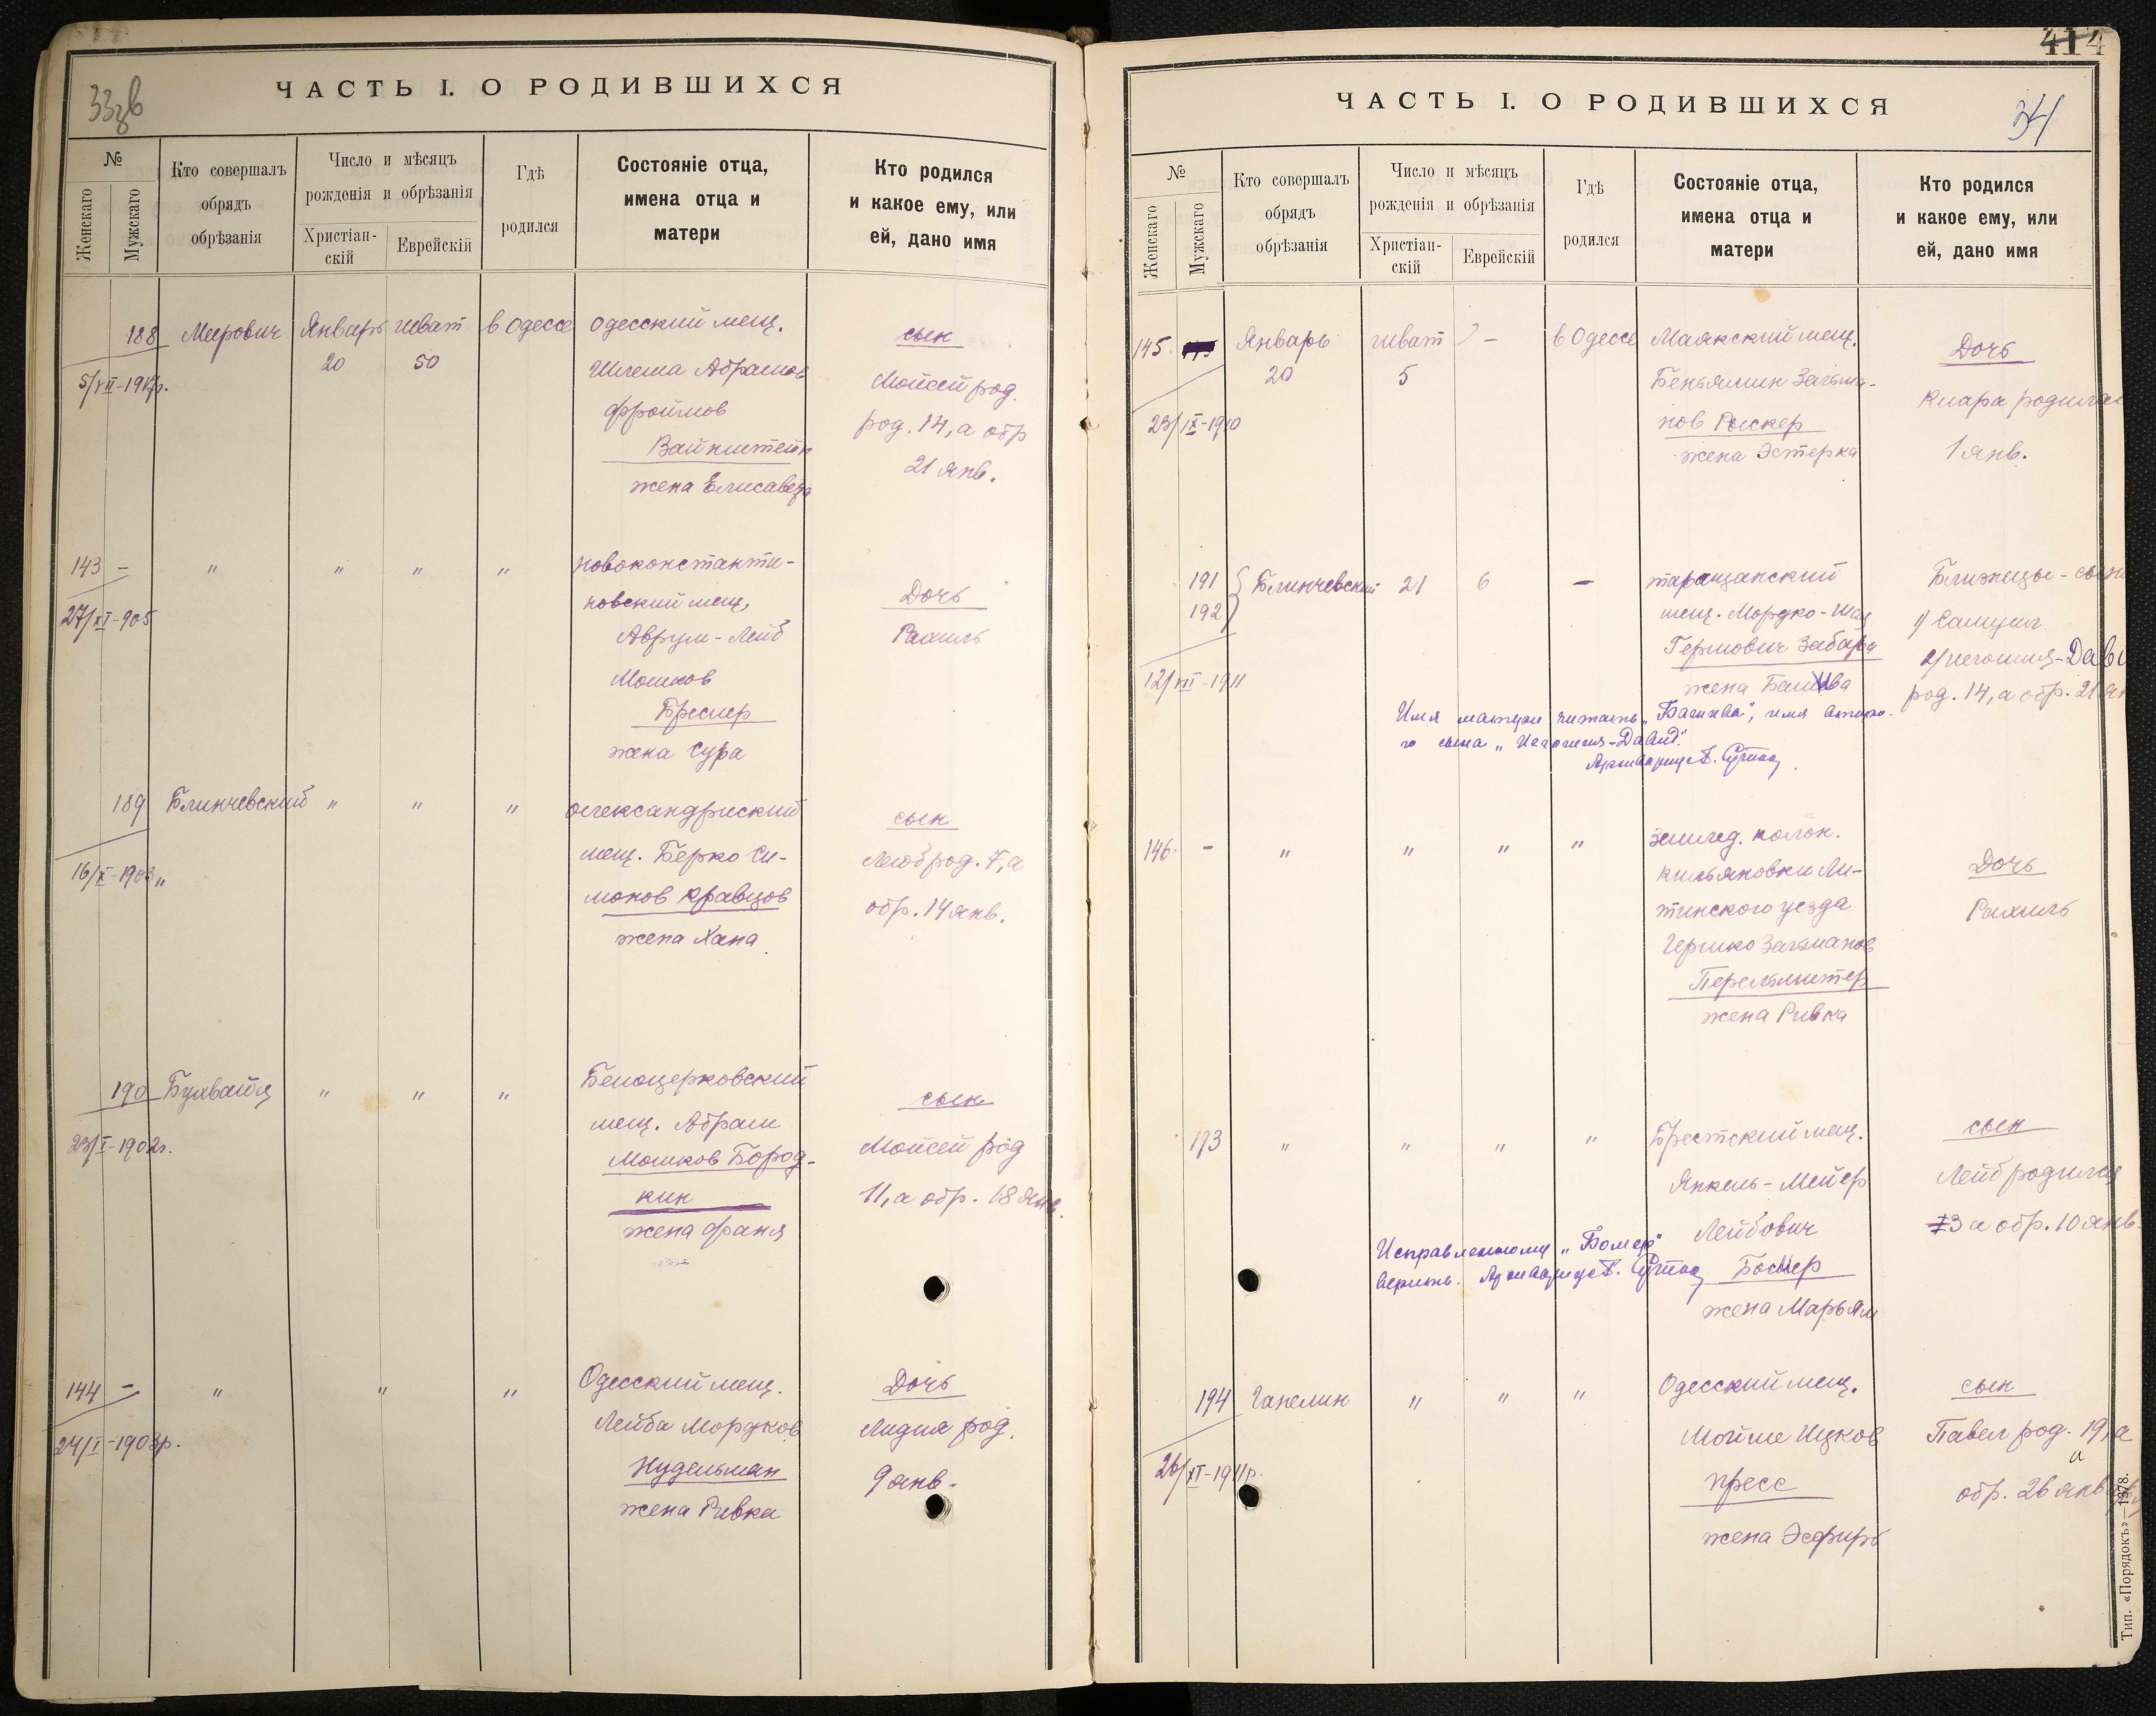 33зв
ЧАСТЬ I. О РОДИВШИХСЯ
№
Женскаго
Мужскаго
Кто совершалъ
обрядъ
обрѣзанія
Число и мѣсяцъ
рожденія и обрѣзанія
Христіан-
скій
Еврейскій
Гдѣ
родился
Состояніе отца,
имена отца и
матери
Кто родился
и какое ему, или
ей, дано имя
188 Меерович Январь шват в Одессе Одесский мещ. сын
20 50 Шлема Абрамов Мойсей род.
5/VII-1917г. Фроймов род. 14, а обр
Вайнштейн 21 янв.
жена Елисавета
143 - " " " " новоконстанти-
новский мещ. Дочь
27/XI-905 Аврум-Лейб Рахиль
Мошков
Бреслер
жена Сура
189 Блинчевский " " " Александрийский сын
мещ. Берко Си- Лейб род. 7, а
16/X-1903 монов Кравцов обр. 14 янв.
жена Хана
190 Бухвайц " " " Белоцерковский сын
мещ. Абрам
23/I-1902г. Мошков Бород- Мойсей род
кин 11, а обр. 18 янв.
жена Фаня
144 - " " " Одесский мещ. Дочь
24/I-1903г. Лейба Мордков Лидия род.
Нудельман 9 янв.
жена Ривка
414
ЧАСТЬ I. О РОДИВШИХСЯ
34
№
Женскаго
Мужскаго
Кто совершалъ
обрядъ
обрѣзанія
Число и мѣсяцъ
рожденія и обрѣзанія
Христіан-
скій
Еврейскій
Гдѣ
родился
Состояніе отца,
имена отца и
матери
Кто родился
и какое ему, или
ей, дано имя
145 Январь шват - в Одессе Маякский мещ. Дочь
20 5 Беньямин Зельма-
23/IX-1910 нов Рыскер Клара родилас
жена Эстерка 1 янв.
191 Блинчевский 21 6 - таращанский Близнецы - сыны
192 мещ. Мордко-Шая 1/ Самуил
Гершович Забара 2/ Иегошия-Дави
12/VII-1911 жена Башева род. 14, а обр. 21 ян
Имя матери читать "Башева", имя второ-
го сына "Иегошия-Давид".
Архивариус
146 - " " " " землед. колон.
кильяновки Ли- Дочь
тинского уезда Рахиль
Гершко Зельманов
Перельмитер
жена Ривка
193 " " " " Брестский мещ. сын
Янкель-Мейер Лейб родился
Лейбович 3 а обр. 10 янв.
Исправленному "Бомер"
верить. Архивариус Бомер
жена Марьям
194 Гапелин " " " Одесский мещ. сын
Мойше Ицков Павел род. 19, а
26/XI-1911г. Пресс обр. 26 янв
жена Эсфирь
Тип. «Порядокъ»—1378.